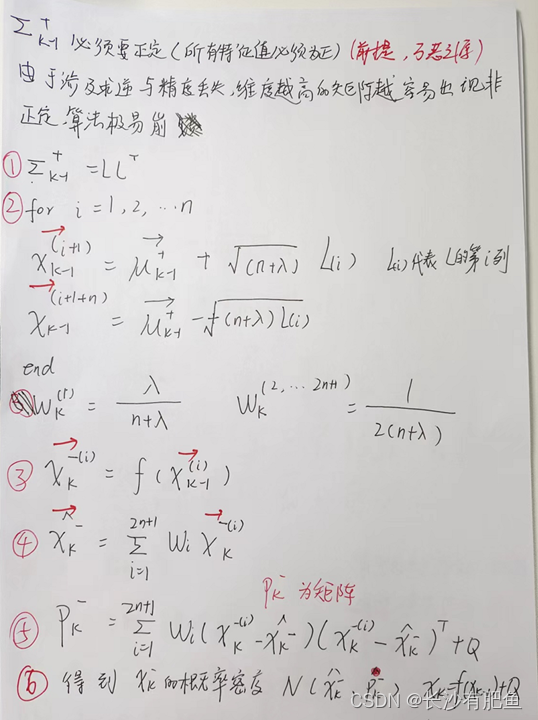 Σ⁺ₖ₋₁ 必须要正定(所有特征值必须为正)(前提,万恶之源)
由于涉及求逆与精度丢失,维度越高的矩阵越容易出现非
正定,算法极易崩
① Σ⁺ₖ₋₁ = LLᵀ
② for i=1,2,…n
χₖ₋₁⁽ⁱ⁺¹⁾ = μ⁺ₖ₋₁ + √(n+λ) L(i) L(i)代表L的第i列
χₖ₋₁⁽ⁱ⁺¹⁺ⁿ⁾ = μ⁺ₖ₋₁ − √((n+λ)L(i))
end
Wₖ⁽¹⁾ = λ/(n+λ) Wₖ⁽²,…²ⁿ⁺¹⁾ = 1/(2(n+λ))
③ χₖ⁻⁽ⁱ⁾ = f(χₖ₋₁⁽ⁱ⁾)
④ x̂ₖ⁻ = Σᵢ₌₁²ⁿ⁺¹ Wi χₖ⁻⁽ⁱ⁾
Pₖ⁻ 为矩阵
⑤ Pₖ⁻ = Σᵢ₌₁²ⁿ⁺¹ Wi(χₖ⁻⁽ⁱ⁾ − x̂ₖ⁻)(χₖ⁻⁽ⁱ⁾ − x̂ₖ⁻)ᵀ + Q
⑥ 得到 Xₖ⁻的概率密度 N(x̂ₖ⁻ Pₖ⁻) Xₖ=f(Xₖ₋₁)+Q
CSDN @长沙有肥鱼